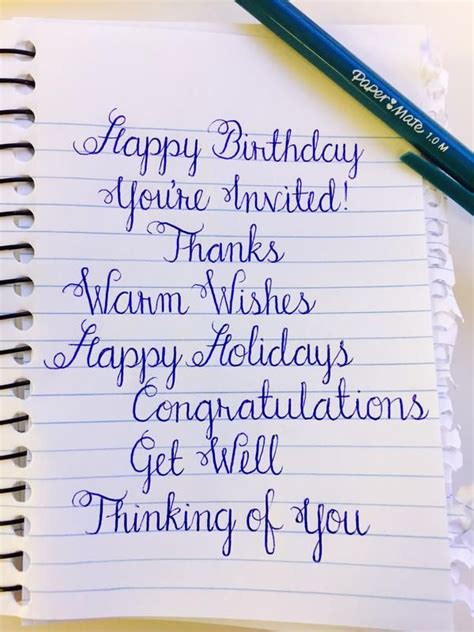 Paper Mate 1.0 M
Happy Birthday
You're Invited!
Thanks
Warm Wishes
Happy Holidays
Congratulations
Get Well
Thinking of You